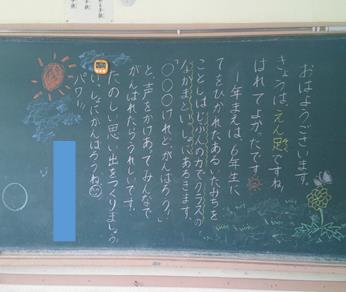 おはようございます。
きょうは、えん足ですね。
はれてよかったです
1年まえは、6年生に
てをひかれたあるいたみちを
ことしはじぶんの力でクラスの
なかまといっしょにあるきます。
「○○○けれど、がんばろう!」
と、声をかけあってみんなで
がんばれたらうれしいです。
たのしい思い出をつくりましょう
パワー!!